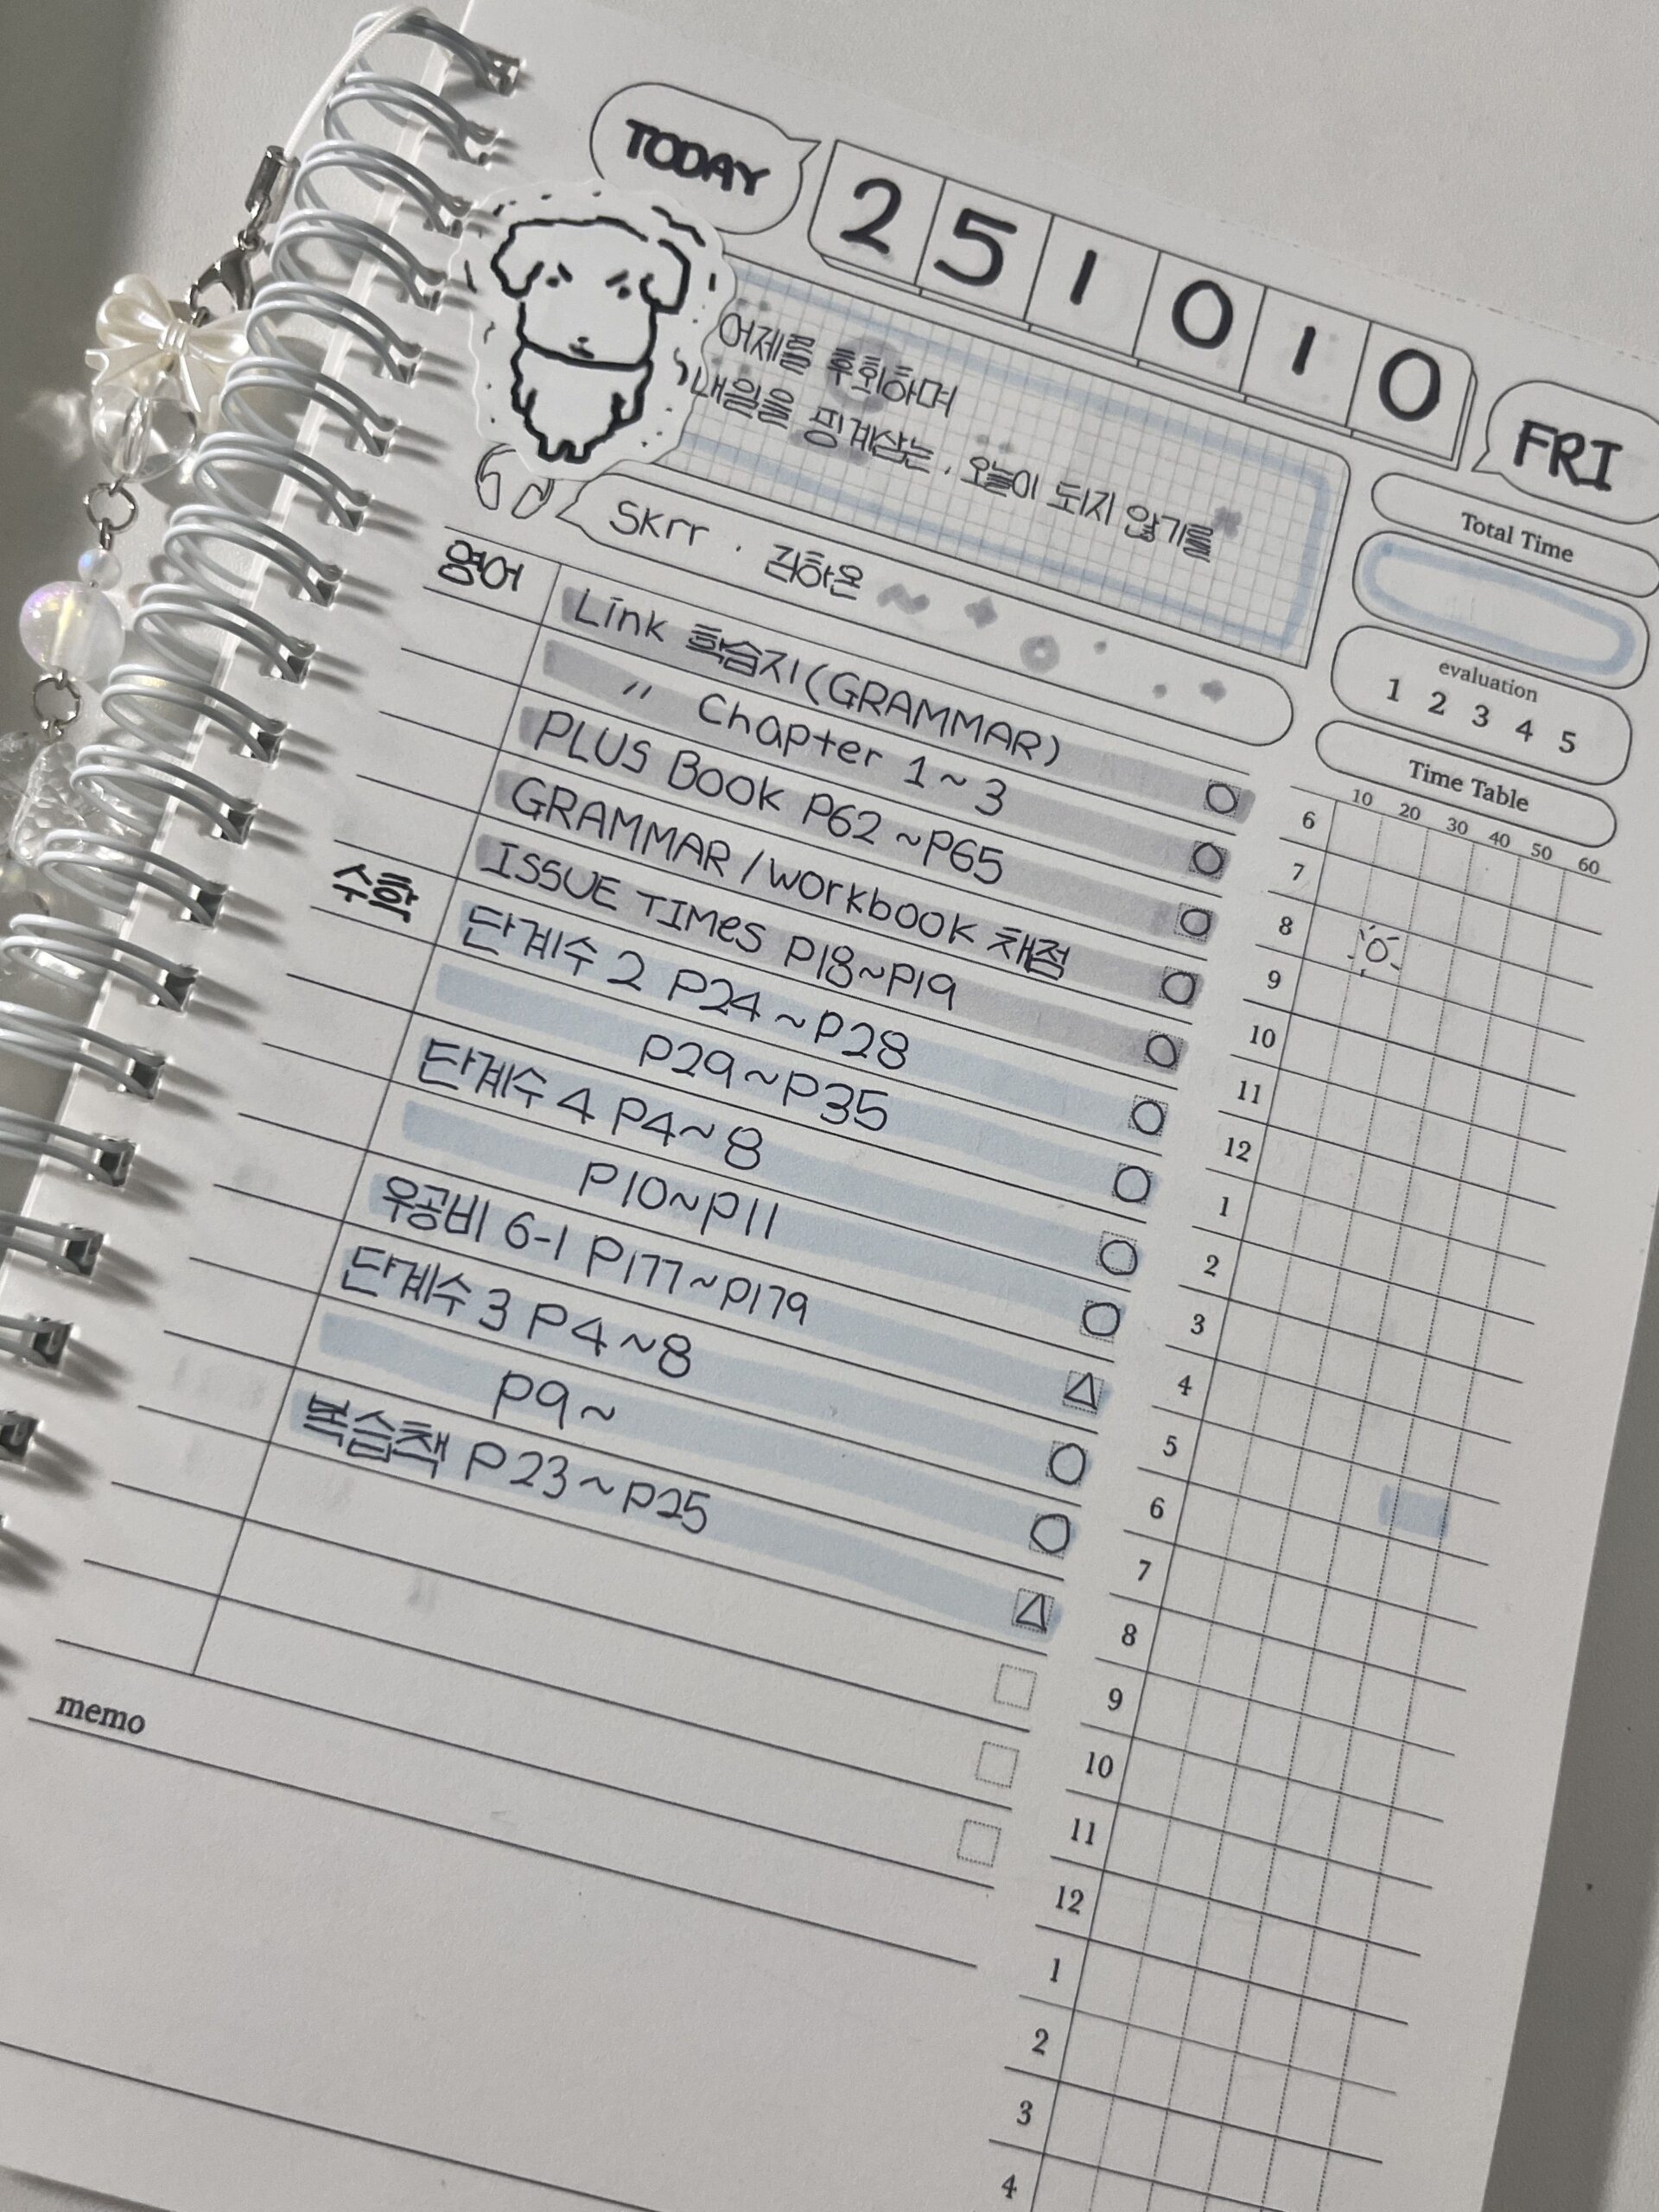 TODAY
2 5 1 0 1 0
FRI
어제를 후회하며
내일을 핑계삼는, 오늘이 되지 않기를
Skrr . 김하온
Total Time
evaluation
1 2 3 4 5
Time Table
10 20 30 40 50 60
영어
Link 학습지(GRAMMAR)
〃 Chapter 1~3
PLUS Book P62~P65
GRAMMAR/workbook 채점
ISSUE TIMes P18~P19
수학
단계수 2 P24~P28
P29~P35
단계수 4 P4~8
P10~P11
우공비 6-1 P177~P179
단계수 3 P4~8
P9~
복습책 P23~P25
memo
6
7
8
9
10
11
12
1
2
3
4
5
6
7
8
9
10
11
12
1
2
3
4